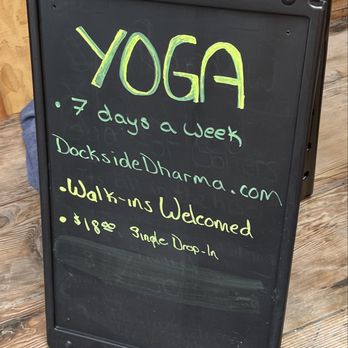 YOGA
• 7 days a week
DocksideDharma.com
• Walk-ins Welcomed
• $18.00 Single Drop-In